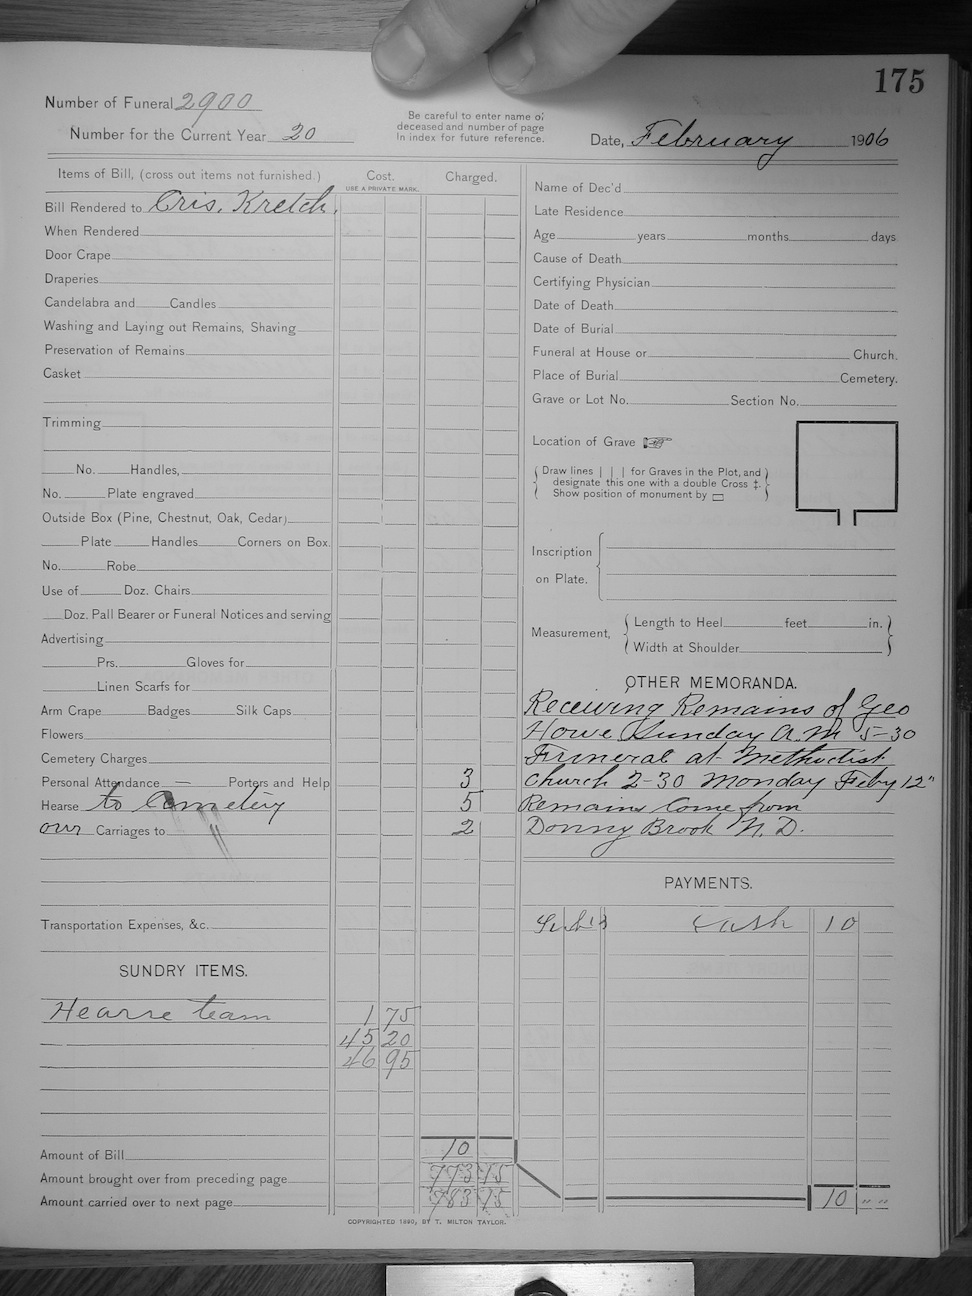 175
Number of Funeral 2900
Number for the Current Year 20
Be careful to enter name of
deceased and number of page
In index for future reference.
Date, February 1906
Items of Bill, (cross out items not furnished.)
Cost.
USE A PRIVATE MARK.
Charged.
Bill Rendered to Cris. Kretch.
When Rendered
Door Crape
Draperies
Candelabra and Candles
Washing and Laying out Remains, Shaving
Preservation of Remains
Casket
Trimming
No. Handles,
No. Plate engraved
Outside Box (Pine, Chestnut, Oak, Cedar)
Plate Handles Corners on Box.
No. Robe
Use of Doz. Chairs
Doz. Pall Bearer or Funeral Notices and serving
Advertising
Prs. Gloves for
Linen Scarfs for
Arm Crape Badges Silk Caps
Flowers
Cemetery Charges
Personal Attendance — Porters and Help 3
Hearse to Cemetery 5
our Carriages to " 2
Transportation Expenses, &c.
SUNDRY ITEMS.
Hearse team 1 75
45 20
46 95
Amount of Bill 10
Amount brought over from preceding page 773 75
Amount carried over to next page 783 75
Name of Dec'd
Late Residence
Age years months days
Cause of Death
Certifying Physician
Date of Death
Date of Burial
Funeral at House or Church.
Place of Burial Cemetery.
Grave or Lot No. Section No.
Location of Grave ☞
Draw lines | | | for Graves in the Plot, and
designate this one with a double Cross ‡.
Show position of monument by ▭
Inscription
on Plate.
Measurement,
Length to Heel feet in.
Width at Shoulder
OTHER MEMORANDA.
Receiving Remains of Geo
Howe Sunday A.M 5-30
Funeral at Methodist
Church 2-30 Monday Feby 12"
Remains Come from
Donny Brook N. D.
PAYMENTS.
Cash 10
10 " "
COPYRIGHTED 1890, BY T. MILTON TAYLOR.